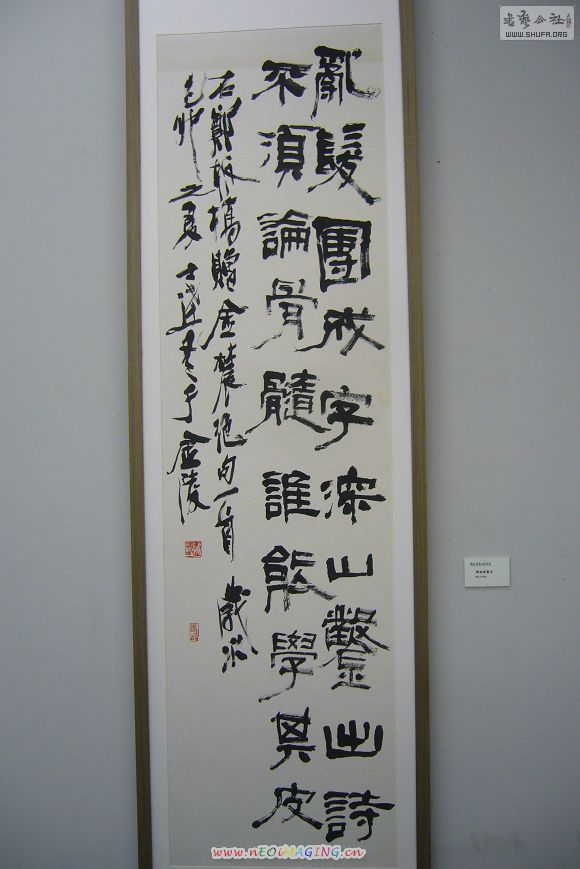 亂髮團成字深山鑿出詩
不須論骨髓誰能學其皮
右鄭板橋贈金農絕句一首 歲次
己卯之夏 書于金陵
書藝公社
WWW.SHUFA.ORG
www.nEOiMAGiNG.cn